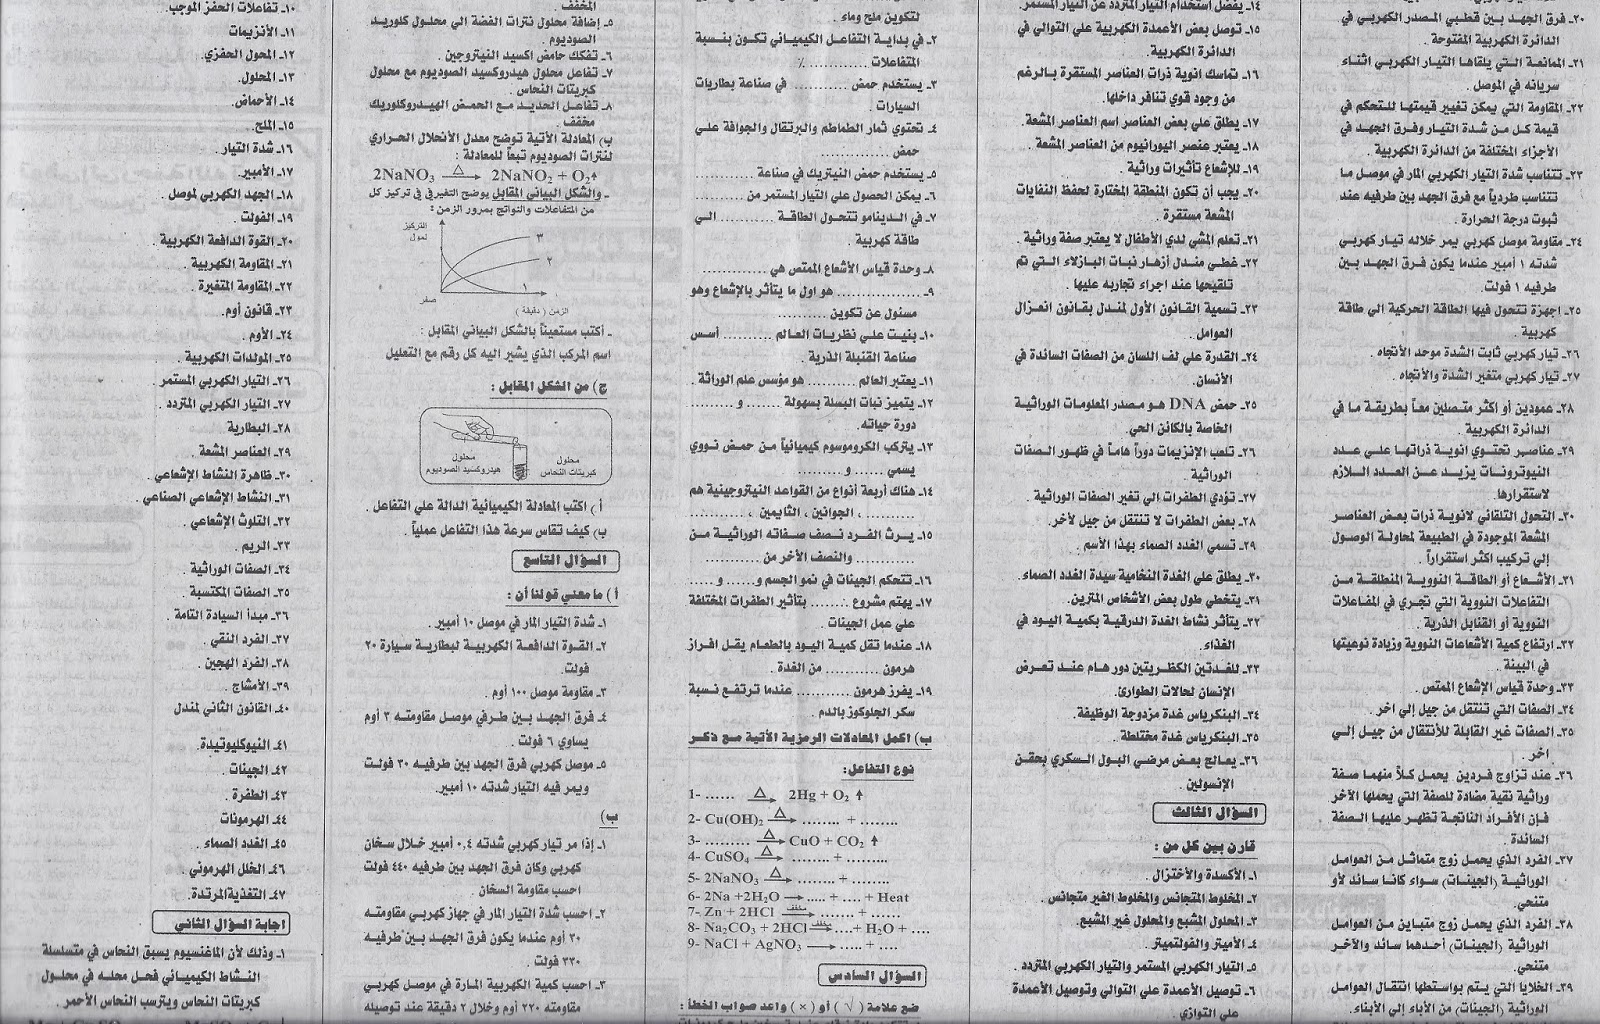 ٢٠ـ فرق الجهد بين قطبي المصدر الكهربي في
الدائرة الكهربية المفتوحة .
٢١ـ الممانعة التي يلقاها التيار الكهربي أثناء
سريانه في الموصل .
٢٢ـ المقاومة التي يمكن تغيير قيمتها للتحكم في
قيمة كل من شدة التيار وفرق الجهد في
الأجزاء المختلفة من الدائرة الكهربية .
٢٣ـ تتناسب شدة التيار الكهربي المار في موصل ما
تناسب طردياً مع فرق الجهد بين طرفيه عند
ثبوت درجة الحرارة .
٢٤ـ مقاومة موصل كهربي يمر خلاله تيار كهربي
شدته ١ أمبير عندما يكون فرق الجهد بين
طرفيه ١ فولت .
٢٥ـ اجهزة تتحول فيها الطاقة الحركية الي طاقة
كهربية .
٢٦ـ تيار كهربي ثابت الشدة موحد الأتجاه .
٢٧ـ تيار كهربي متغير الشدة والأتجاه .
٢٨ـ عمودين أو أكثر متصلين معاً بطريقة ما في
الدائرة الكهربية .
٢٩ـ عناصر تحتوي انوية ذراتها علي عدد
النيوترونات يزيد عن العدد اللازم
لاستقرارها.
٣٠ـ التحول التلقائي لانوية ذرات بعض العناصر
المشعة الموجودة في الطبيعة لمحاولة الوصول
إلي تركيب اكثر استقراراً .
٣١ـ الأشعاع أو الطاقة النووية المنطلقة من
التفاعلات النووية التي تجري في المفاعلات
النووية أو القنابل الذرية .
٣٢ـ ارتفاع كمية الأشعاعات النووية وزيادة نوعيتها
في البيئة .
٣٣ـ وحدة قياس الإشعاع الممتص .
٣٤ـ الصفات التي تنتقل من جيل إلي اخر .
٣٥ـ الصفات غير القابلة للأنتقال من جيل إلي
اخر .
٣٦ـ عند تزاوج فردين يحمل كلاً منهما صفة
وراثية نقية مضادة للصفة التي يحملها الآخر
فإن الأفراد الناتجة تظهر عليها الصفة
السائدة .
٣٧ـ الفرد الذي يحمل زوج متماثل من العوامل
الوراثية (الجينات) سواء كانا سائد لأو
متنحي.
٣٨ـ الفرد الذي يحمل زوج متباين من العوامل
الوراثية (الجينات) أحدهما سائد والآخر
متنحي.
٣٩ـ الخلايا التي يتم بواسطتها انتقال العوامل
الوراثية (الجينات) من الأباء إلي الأبناء.
١٤ـ يفضل استخدام التيار المتردد عن التيار المستمر.
١٥ـ توصل بعض الأعمدة الكهربية علي التوالي في
الدائرة الكهربية
١٦ـ تماسك انوية ذرات العناصر المستقرة بالرغم
من وجود قوي تنافر داخلها.
١٧ـ يطلق علي بعض العناصر اسم العناصر المشعة.
١٨ـ يعتبر عنصر اليورانيوم من العناصر المشعة .
١٩ـ للإشعاع تأثيرات وراثية .
٢٠ـ يجب أن تكون المنطقة المختارة لحفظ النفايات
المشعة مستقرة .
٢١ـ تعلم المشي لدي الأطفال لا يعتبر صفة وراثية .
٢٢ـ غطي مندل أزهار نبات البازلاء التي تم
تلقيحها عند اجراء تجاربه عليها .
٢٣ـ تسمية القانون الأول لمندل بقانون انعزال
العوامل.
٢٤ـ القدرة علي لف اللسان من الصفات السائدة في
الأنسان.
٢٥ـ حمض DNA هو مصدر المعلومات الوراثية
الخاصة بالكائن الحي.
٢٦ـ تلعب الإنزيمات دوراً هاماً في ظهور الصفات
الوراثية
٢٧ـ تؤدي الطفرات الي تغير الصفات الوراثية .
٢٨ـ بعض الطفرات لا تنتقل من جيل لأخر.
٢٩ـ تسمي الغدد الصماء بهذا الأسم .
٣٠ـ يطلق علي الغدة النخامية سيدة الغدد الصماء.
٣١ـ يتخطي طول بعض الأشخاص المترين.
٣٢ـ يتأثر نشاط الغدة الدرقية بكمية اليود في
الغذاء.
٣٣ـ للغدتين الكظريتين دور هام عند تعرض
الإنسان لحالات الطوارئ.
٣٤ـ البنكرياس غدة مزدوجة الوظيفة.
٣٥ـ البنكرياس غدة مختلطة.
٣٦ـ يعالج بعض مرضي البول السكري بحقن
الإنسولين.
السؤال الثالث
قارن بين كل من :
١ـ الأكسدة والأختزال .
٢ـ المخلوط المتجانس والمخلوط الغير متجانس.
٣ـ المحلول المشبع والمحلول غير المشبع.
٤ـ الأميتر والفولتميتر.
٥ـ التيار الكهربي المستمر والتيار الكهربي المتردد .
٦ـ توصيل الأعمدة علي التوالي وتوصيل الأعمدة
علي التوازي .
لتكوين ملح وماء .
٢ـ في بداية التفاعل الكيميائي تكون نسبة
المتفاعلات ............ ٪
٣ـ يستخدم حمض .......... في صناعة بطاريات
السيارات .
٤ـ تحتوي ثمار الطماطم والبرتقال والجوافة علي
حمض .............
٥ـ يستخدم حمض النيتريك في صناعة ..........
٦ـ يمكن الحصول علي التيار المستمر من ..........
٧ـ في الدينامو تتحول الطاقة .......... الي
طاقة كهربية .
٨ـ وحدة قياس الأشعاع الممتص هي ............
٩ـ ............ هو اول ما يتأثر بالإشعاع وهو
مسئول عن تكوين ..........
١٠ـ بنيت علي نظريات العالم .......... أسس
صناعة القنبلة الذرية.
١١ـ يعتبر العالم .......... هو مؤسس علم الوراثة .
١٢ـ يتميز نبات البسلة بسهولة ....... و ........
دورة حياته.
١٣ـ يتركب الكروموسوم كيميائياً من حمض نووي
يسمي ...... و ........
١٤ـ هناك أربعة أنواع من القواعد النيتروجينية هم
........ ، الجوانين ، الثايمين ، ..........
١٥ـ يرث الفرد نصف صفاته الوراثية من
.......... والنصف الأخر من ..........
١٦ـ تتحكم الجينات في نمو الجسم و...... و .....
١٧ـ يهتم مشروع ........ بتأثير الطفرات المختلفة
علي عمل الجينات .
١٨ـ عندما تقل كمية اليود بالطعام يقل افراز
هرمون .......... من الغدة .
١٩ـ يفرز هرمون .......... عندما ترتفع نسبة
سكر الجلوكوز بالدم .
ب) اكمل المعادلات الرمزية الأتية مع ذكر
نوع التفاعل:
1- ...... △→ 2Hg + O2 ↑
2- Cu(OH)2 △→ ........ + ........
3- ........ △→ CuO + CO2 ↑
4- CuSO4 △→ ........ + .........
5- 2NaNO3 △→ ........ + ........
6- 2Na +2H2O → ..... + .... + Heat
7- Zn + 2HCl مخفف→ ...... + ......
8- Na2CO3 + 2HCl مخفف→ ....+ H2O + ....
9- NaCl + AgNO3 → ..... + ....
السؤال السادس
ضع علامة (√) أو (×) واعد صواب الخطأ :
المخفف .
٥ـ إضافة محلول نترات الفضة الي محلول كلوريد
الصوديوم .
٦ـ تفكك حامض اكسيد النيتروجين .
٧ـ تفاعل محلول هيدروكسيد الصوديوم مع محلول
كبريتات النحاس .
٨ـ تفاعل الحديد مع الحمض الهيدروكلوريك
مخفف .
ب) المعادلة الأتية توضح معدل الأنحلال الحراري
لنترات الصوديوم تبعاً للمعادلة :
2NaNO3 △→ 2NaNO2 + O2↑
ـ والشكل البياني المقابل يوضح التغير في تركيز كل
من المتفاعلات والنواتج بمرور الزمن :
التركيز
لمول
٣
٢
١
صفر
الزمن ( دقيقة )
ـ أكتب مستعيناً بالشكل البياني المقابل :
اسم المركب الذي يشير اليه كل رقم مع التعليل
ج) من الشكل المقابل :
محلول
كبريتات النحاس
محلول
هيدروكسيد الصوديوم
أ ) اكتب المعادلة الكيميائية الدالة علي التفاعل .
ب) كيف تقاس سرعة هذا التفاعل عملياً .
السؤال التاسع
أ ) ما معني قولنا أن :
١ـ شدة التيار المار في موصل ١٠ أمبير .
٢ـ القوة الدافعة الكهربية لبطارية سيارة ٢٠
فولت.
٣ـ مقاومة موصل ١٠٠ أوم .
٤ـ فرق الجهد بين طرفي موصل مقاومته ٣ أوم
يساوي ٦ فولت .
٥ـ موصل كهربي فرق الجهد بين طرفيه ٣٠ فولت
ويمر فيه التيار شدته ١٠ أمبير.
ب)
١ـ إذا مر تيار كهربي شدته ٠,٤ أمبير خلال سخان
كهربي وكان فرق الجهد بين طرفيه ٤٤٠ فولت
احسب مقاومة السخان
٢ـ احسب شدة التيار المار في جهاز كهربي مقاومته
٣٠ أوم عندما يكون فرق الجهد بين طرفيه
٣٣٠ فولت .
٣ـ احسب كمية الكهربية المارة في موصل كهربي
مقاومته ٢٢٠ أوم وخلال ٢ دقيقة عند توصيله
١٠ـ تفاعلات الحفز الموجب.
١١ـ الأنزيمات
١٢ـ المحول الحفزي .
١٣ـ المحلول.
١٤ـ الأحماض.
١٥ـ الملح.
١٦ـ شدة التيار.
١٧ـ الأمبير.
١٨ـ الجهد الكهربي لموصل.
١٩ـ الفولت .
٢٠ـ القوة الدافعة الكهربية .
٢١ـ المقاومة الكهربية .
٢٢ـ المقاومة المتغيرة .
٢٣ـ قانون أوم.
٢٤ـ الأوم .
٢٥ـ المولدات الكهربية .
٢٦ـ التيار الكهربي المستمر .
٢٧ـ التيار الكهربي المتردد .
٢٨ـ البطارية
٢٩ـ العناصر المشعة .
٣٠ـ ظاهرة النشاط الإشعاعي .
٣١ـ النشاط الإشعاعي الصناعي .
٣٢ـ التلوث الإشعاعي .
٣٣ـ الريم .
٣٤ـ الصفات الوراثية .
٣٥ـ الصفات المكتسبة .
٣٦ـ مبدأ السيادة التامة .
٣٧ـ الفرد النقي .
٣٨ـ الفرد الهجين .
٣٩ـ الأمشاج .
٤٠ـ القانون الثاني لمندل
٤١ـ النيوكليوتيدة.
٤٢ـ الجينات .
٤٣ـ الطفرة .
٤٤ـ الهرمونات
٤٥ـ الغدد الصماء .
٤٦ـ الخلل الهرموني .
٤٧ـ التغذية المرتدة.
اجابة السؤال الثاني
١ـ وذلك لأن الماغنسيوم يسبق النحاس في متسلسلة
النشاط الكيميائي فحل محله في محلول
كبريتات النحاس ويترسب النحاس الأحمر .